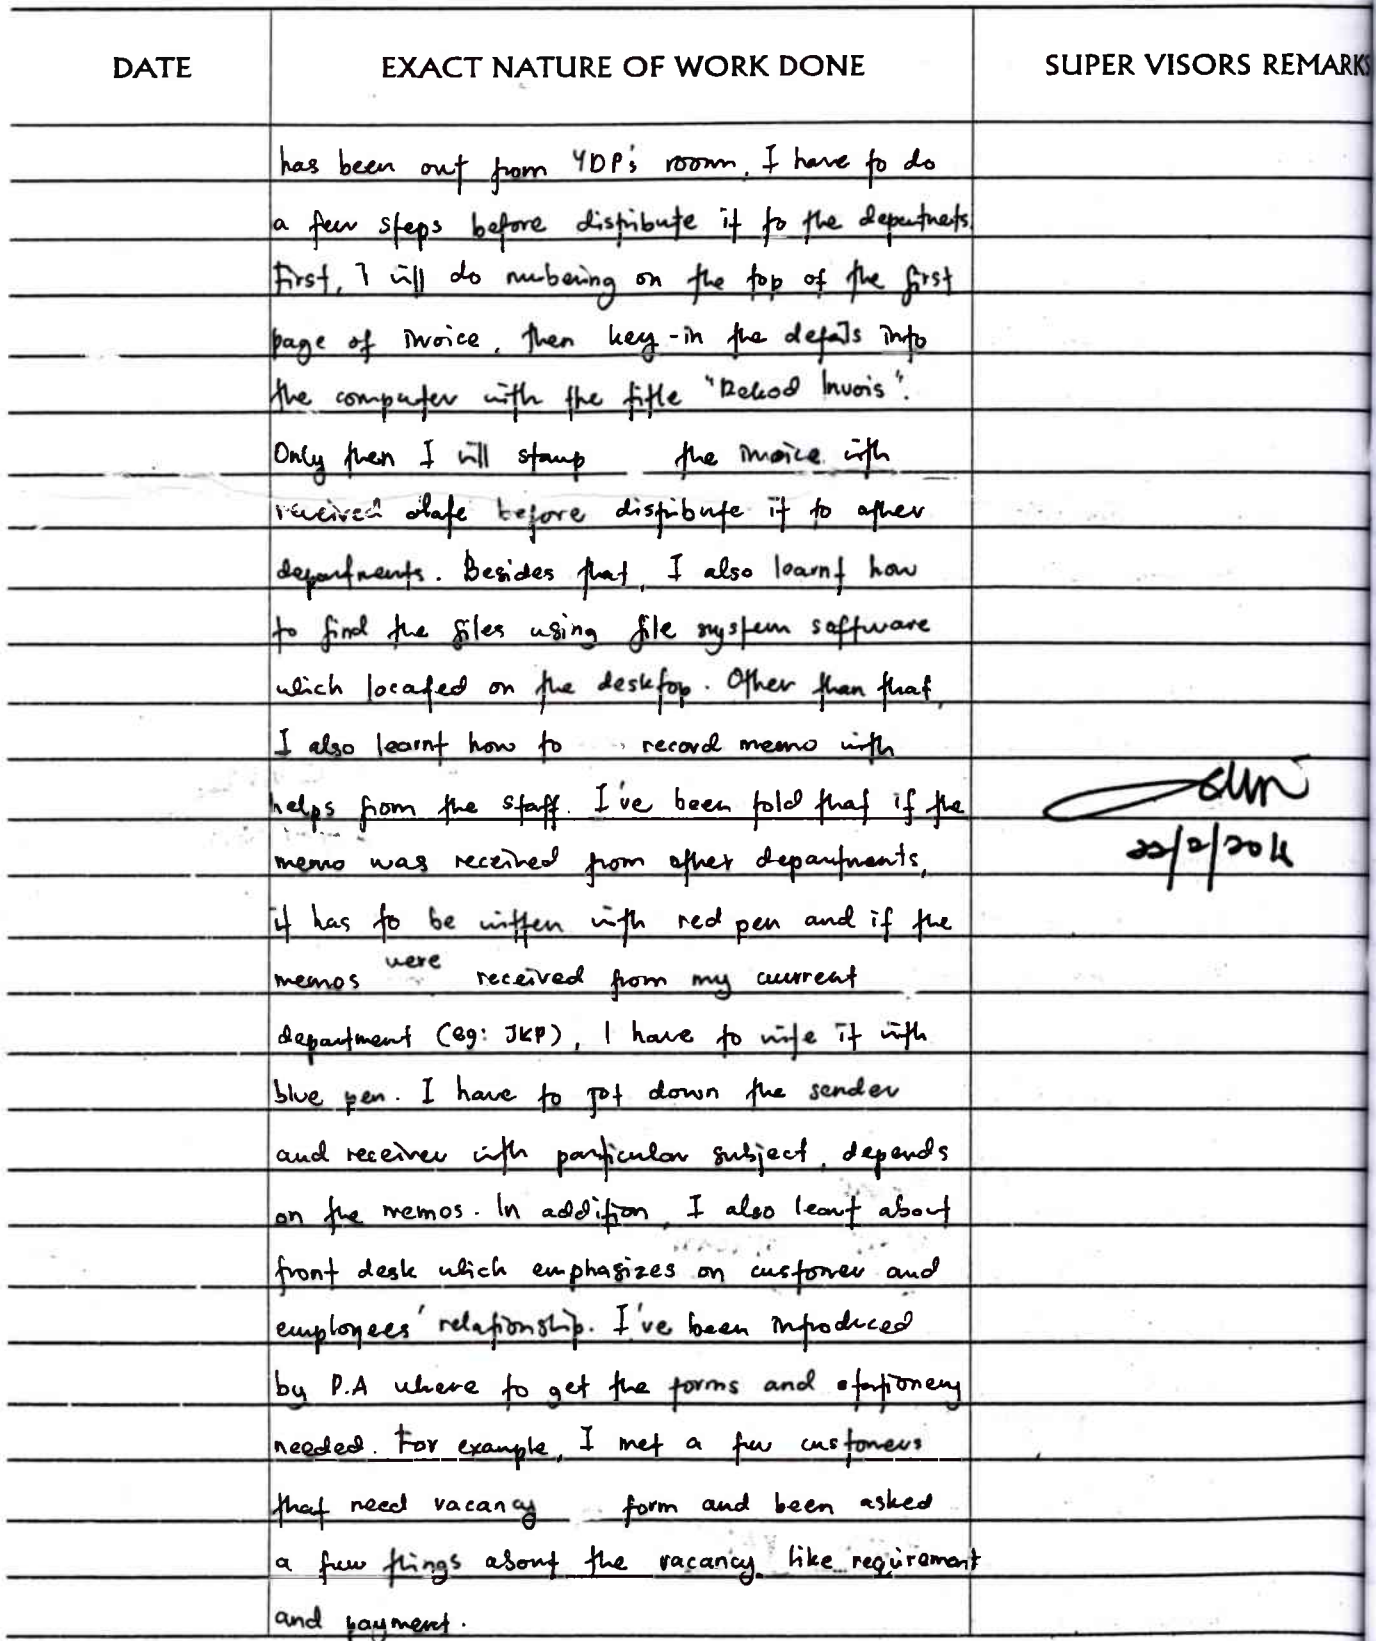 DATE EXACT NATURE OF WORK DONE SUPER VISORS REMARKS
has been out from YDP's room, I have to do
a few steps before distribute it to the departnets.
First, I will do nubering on the top of the first
page of invoice, then key-in the details into
the computer with the title "Rekod Invois".
Only then I will stamp the invoice with
received date before distribute it to other
departments. Besides that, I also learnt how
to find the files using file system software
which located on the desktop. Other than that,
I also learnt how to record memo with
helps from the staff. I've been told that if the
memo was received from other departments,
it has to be written with red pen and if the
memos were received from my current
department (eg: JKP), I have to write it with
blue pen. I have to jot down the sender
and receiver with particular subject, depends
on the memos. In addition, I also learnt about
front desk which emphasizes on customer and
employees' relationship. I've been introduced
by P.A where to get the forms and stationery
needed. For example, I met a few customers
that need vacancy form and been asked
a few things about the vacancy like requirement
and payment.